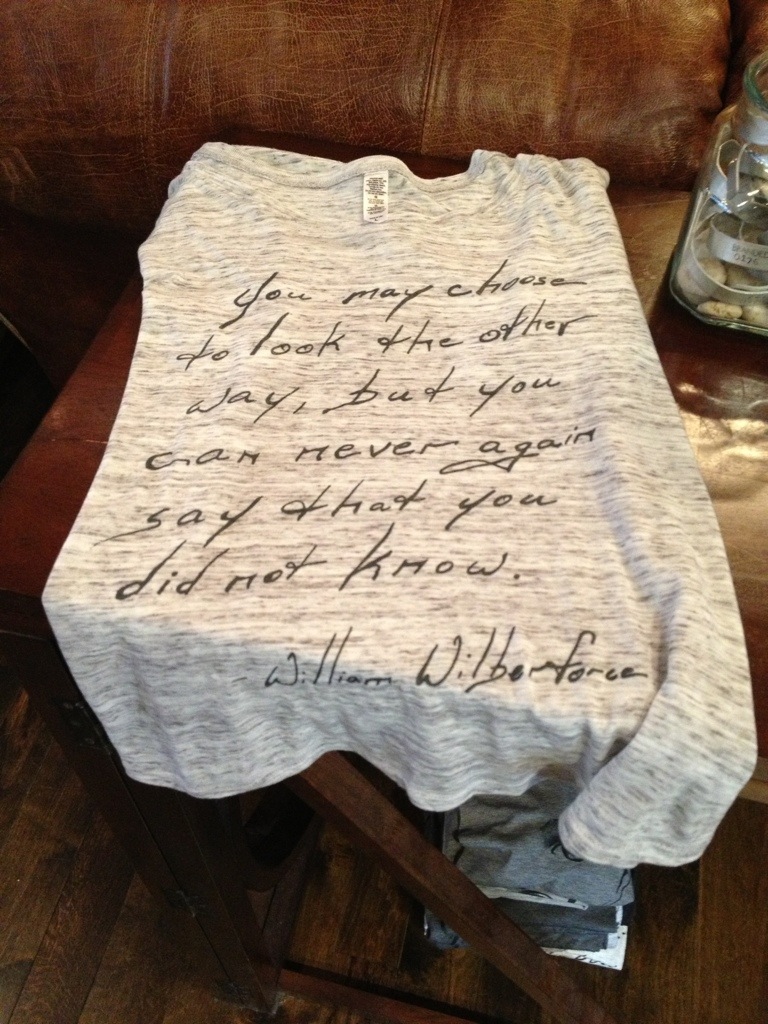 you may choose
to look the other
way, but you
can never again
say that you
did not know.
- William Wilberforce